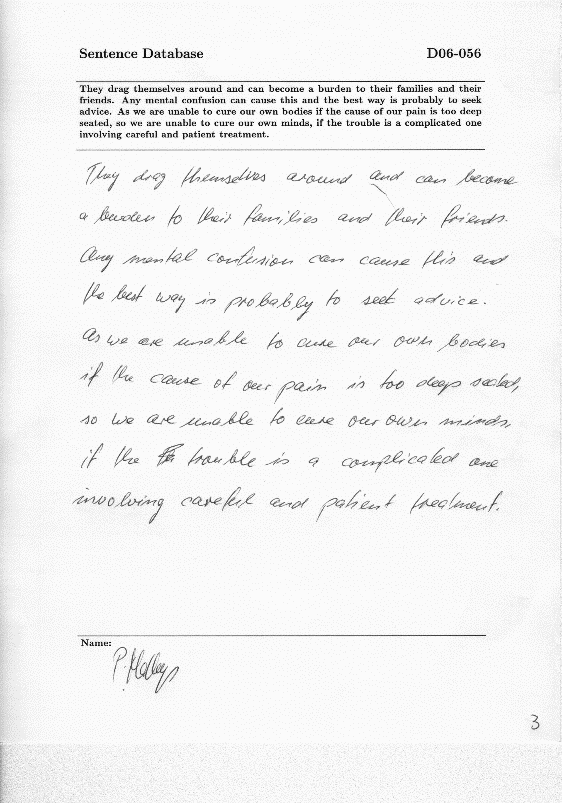 Sentence Database D06-056
They drag themselves around and can become a burden to their families and their
friends. Any mental confusion can cause this and the best way is probably to seek
advice. As we are unable to cure our own bodies if the cause of our pain is too deep
seated, so we are unable to cure our own minds, if the trouble is a complicated one
involving careful and patient treatment.
They drag themselves around and can become
a burden to their families and their friends.
Any mental confusion can cause this and
the best way is probably to seek advice.
As we are unable to cure our own bodies
if the cause of our pain is too deep seated,
so we are unable to cure our own minds,
if the trouble is a complicated one
involving careful and patient treatment.
Name:
P.
3